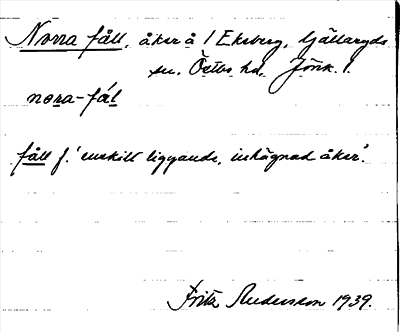 Norra fåll, åker å 1 Eksberg, Gällaryds
sn. Östbo hd, Jönk. l.
nora-fål
fåll f. 'enskilt liggande, inhägnad åker'.
Fritz Andersson 1939.